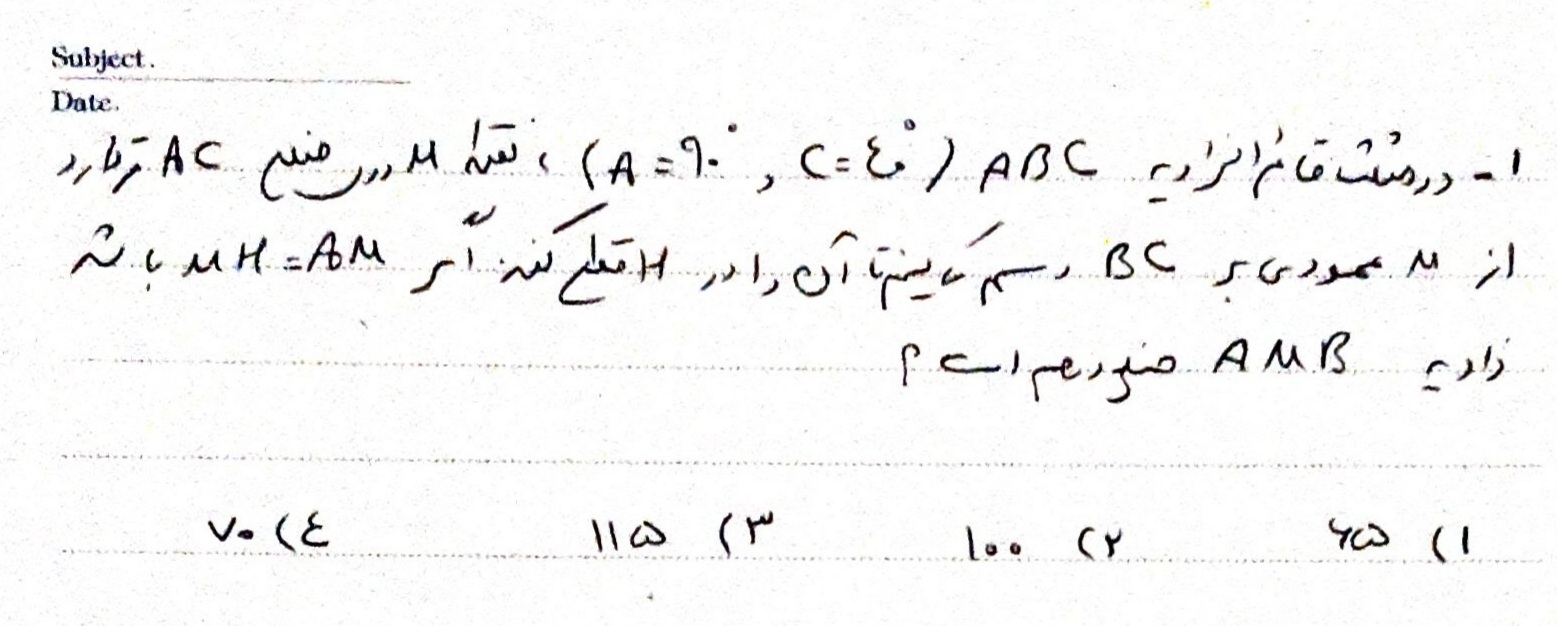 Subject.
Date.
۱- در مثلث قائم الزاویه ABC (A=۹۰° , C=٤۰°) ، نقطه M روی ضلع AC قرار دارد
از M عمودی بر BC رسم می کنیم تا آن را در H قطع کند. اگر MH=AM باشد
زاویه AMB چند درجه است ؟
۱) ۶۵ ۲) ۱۰۰ ۳) ۱۱۵ ٤) ۷۰